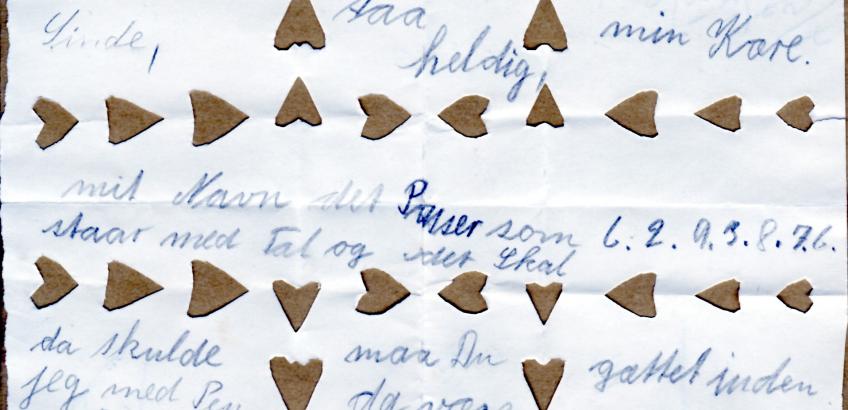 Sinde, saa min Kære.
heldig,
mit Navn det Passer som 6. 2. 9. 3. 8. 7. 6.
staar med Tal og det Skal
da skulde maa Du gættet inden
jeg med Pen da være